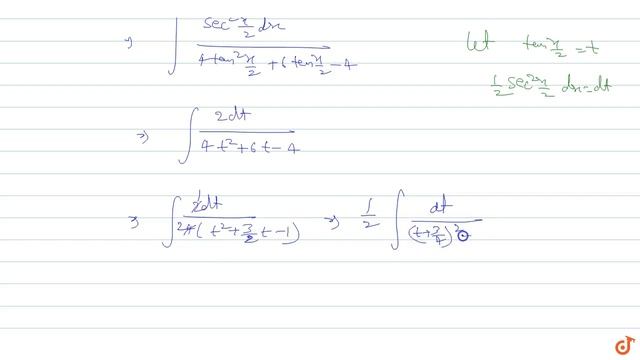 ⇒ ∫ sec² x/2 dx / (4 tan² x/2 + 6 tan x/2 − 4)
let tan x/2 = t
1/2 sec² x/2 dx = dt
⇒ ∫ 2dt / (4t² + 6t − 4)
⇒ ∫ 2dt / (4(t² + 3/2 t − 1)) ⇒ 1/2 ∫ dt / (t + 3/4)²